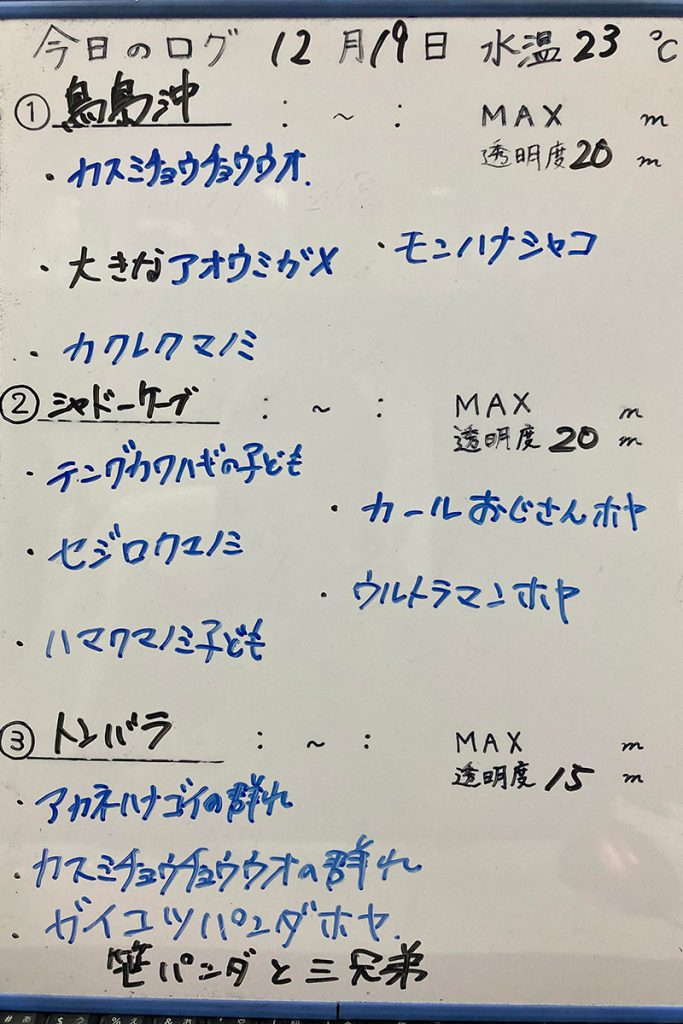 今日のログ 12月19日 水温23℃
① 鳥島沖 : ~ : MAX m
透明度20m
・カスミチョウチョウウオ.
・大きなアオウミガメ ・モンハナシャコ
・カクレクマノミ
② シャドーケーブ : ~ : MAX m
透明度20m
・テングカワハギの子ども
・カールおじさんホヤ
・セジロクマノミ
・ウルトラマンホヤ
・ハマクマノミ子ども
③ トンバラ : ~ : MAX m
透明度15m
・アカネハナゴイの群れ
・カスミチョウチョウウオの群れ
・ガイコツパンダホヤ.
笹パンダと三兄弟